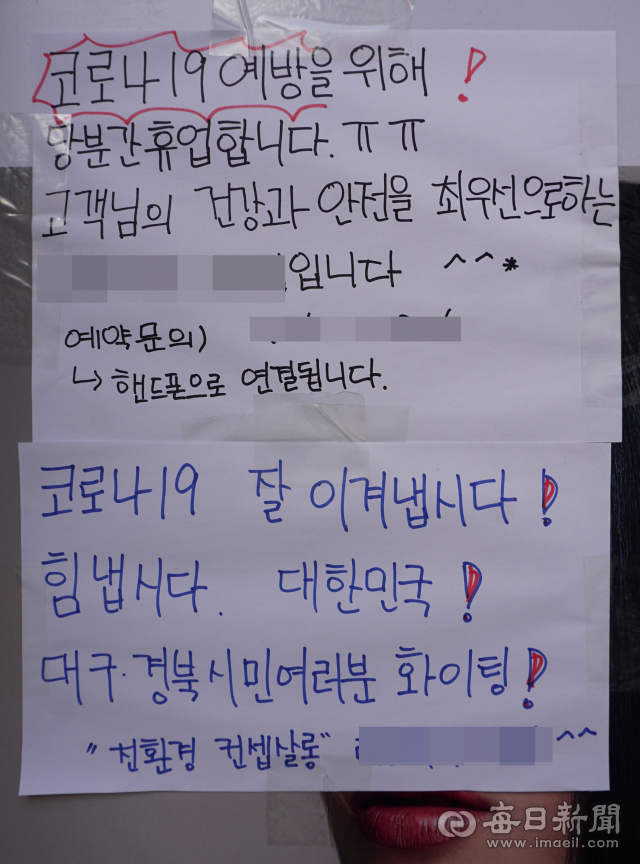 코로나19 예방을 위해 !
당분간휴업합니다. ㅠㅠ
고객님의 건강과 안전을 최우선으로하는
입니다 ^^*
예약문의)
↳ 핸드폰으로 연결됩니다.
코로나19 잘 이겨냅시다!
힘냅시다. 대한민국!
대구·경북시민여러분 화이팅!
"친환경 컨셉살롱" ^^
每日新聞
www.imaeil.com